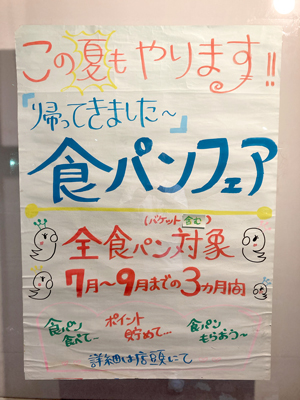 この夏もやります!!
「帰ってきました〜
食パンフェア
(バケット含む)
全食パン対象
7月〜9月までの3ヵ月間
食パン食べて…
ポイント貯めて…
食パンもらおう〜
詳細は店頭にて